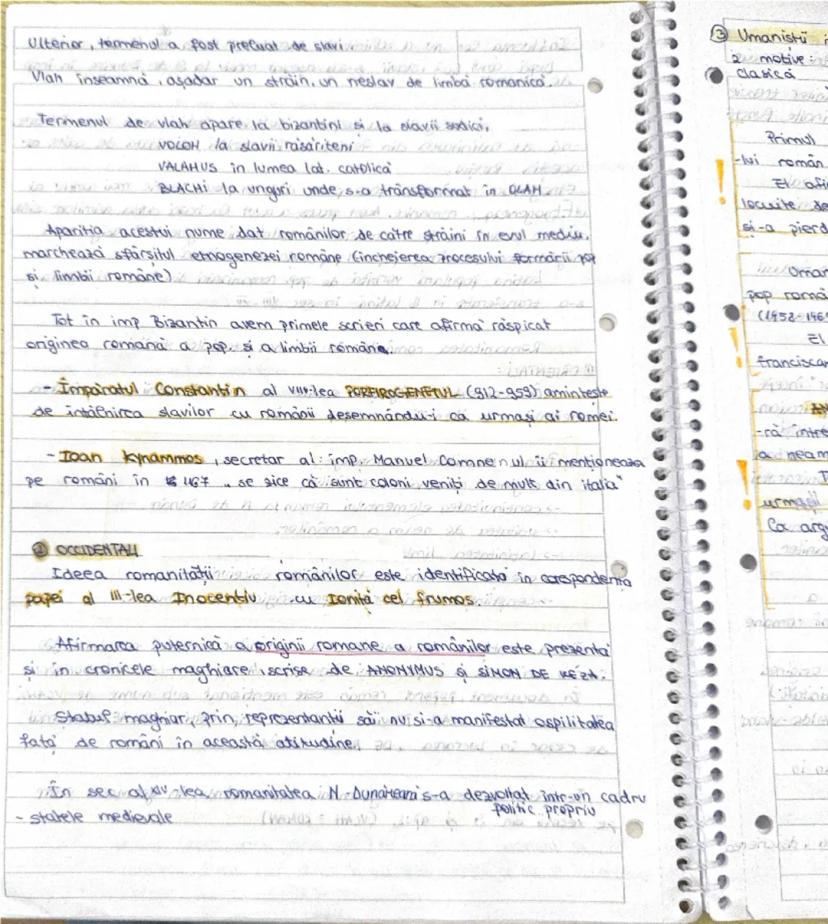 Ulterior, termenul a fost preluat de slavi
Vlah înseamnă, așadar un străin, un neslav de limbă romanică.
Termenul de vlah apare la bizantini și la slavii sudici,
VOLOH la slavii răsăriteni
VALAHUS în lumea lat. catolică
BLACHI la unguri unde s-a transformat în OLAH.
Apariția acestui nume dat românilor de către străini în evul mediu,
marchează sfârșitul etnogenezei române (încheierea procesului formării pop
și limbii române)
Tot în imp Bizantin avem primele scrieri care afirmă răspicat
originea romană a pop. și a limbii române.
- Împăratul Constantin al VII-lea PORFIROGENETUL (912-959) amintește
de întâlnirea slavilor cu românii desemnându-i ca urmași ai romei.
- Ioan Kynammos, secretar al imp. Manuel Comnenul îi menționează
pe români în 1167 „se zice că sunt coloni veniți de mult din italia"
② OCCIDENTALI
Ideea romanității românilor este identificată în corespondența
papei al III-lea Inocențiu cu Ioniță cel frumos.
Afirmarea puternică a originii romane a românilor este prezentă
și în cronicele maghiare, scrise de ANONIMUS și SIMON DE KEZA.
Statul maghiar, prin reprezentantii săi nu si-a manifestat ospilitatea
față de români în această atitudine.
În sec al XIV-lea romanitatea N-Dunăreană s-a dezvoltat într-un cadru
politic propriu
- statele medievale
③ Umaniștii
2 motive:
clasică
Primul
-lui român
El afi
locuite de
și-a pierd
Uman
pop româ
(1452-146
El
franciscan
-ră între
a neam
urmașii
Ca arg